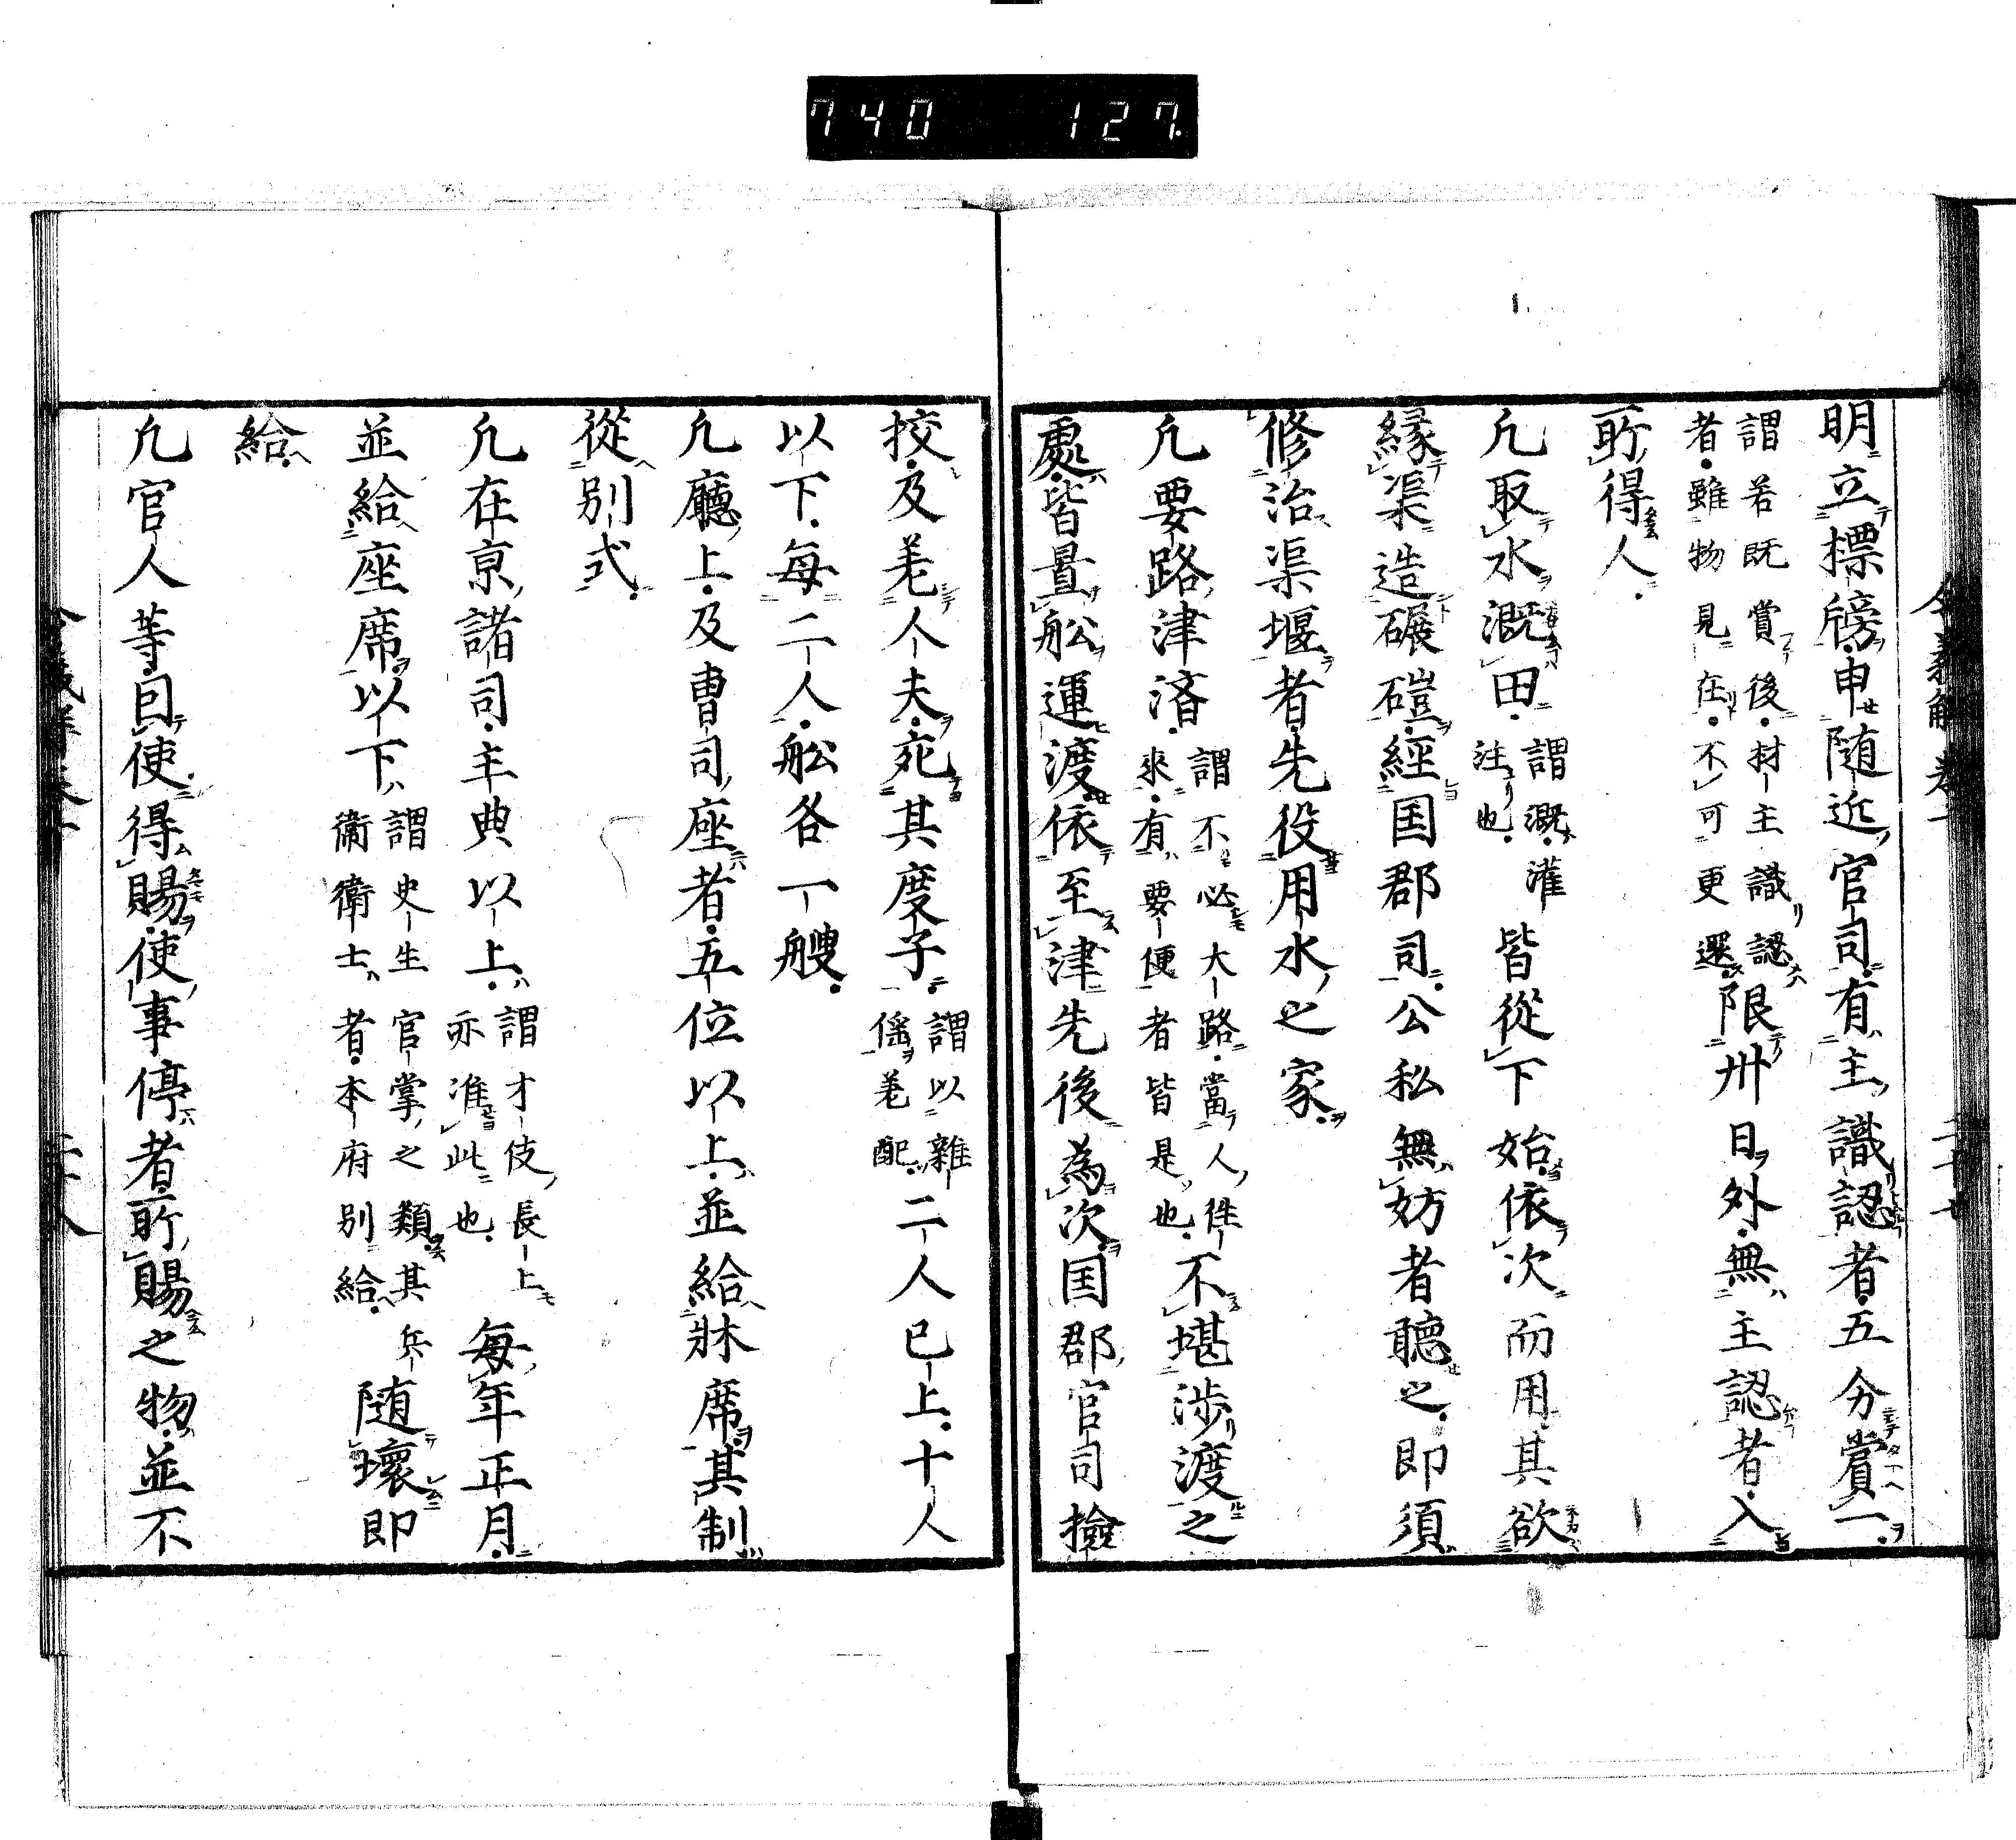 740 127
明立標牓申随近官司有主識認者五分賞一
謂若既賞後材主識認
者雖物見在不可更還
限卅日外無主認者入
所得人
凡取水漑田
謂漑灌
注也
皆從下始依次而用其欲
縁渠造碾磑經国郡司公私無妨者聴之即須
修治渠堰者先役用水之家
凡要路津済
謂不必大路當人往
来有要便者皆是也
不堪渉渡之
處皆置舩運渡依至津先後為次国郡官司撿
挍及差人夫死其度子
謂以雜
徭差配
二人已上十人
以下毎二人舩各一艘
凡廳上及曹司座者五位以上並給牀席其制
從別式
凡在京諸司主典以上
謂才伎長上
亦准此也
毎年正月
並給座席以下
謂史生官掌之類其兵
衛衛士者本府別給
随壞即
給
凡官人等因使得賜使事停者所賜之物並不